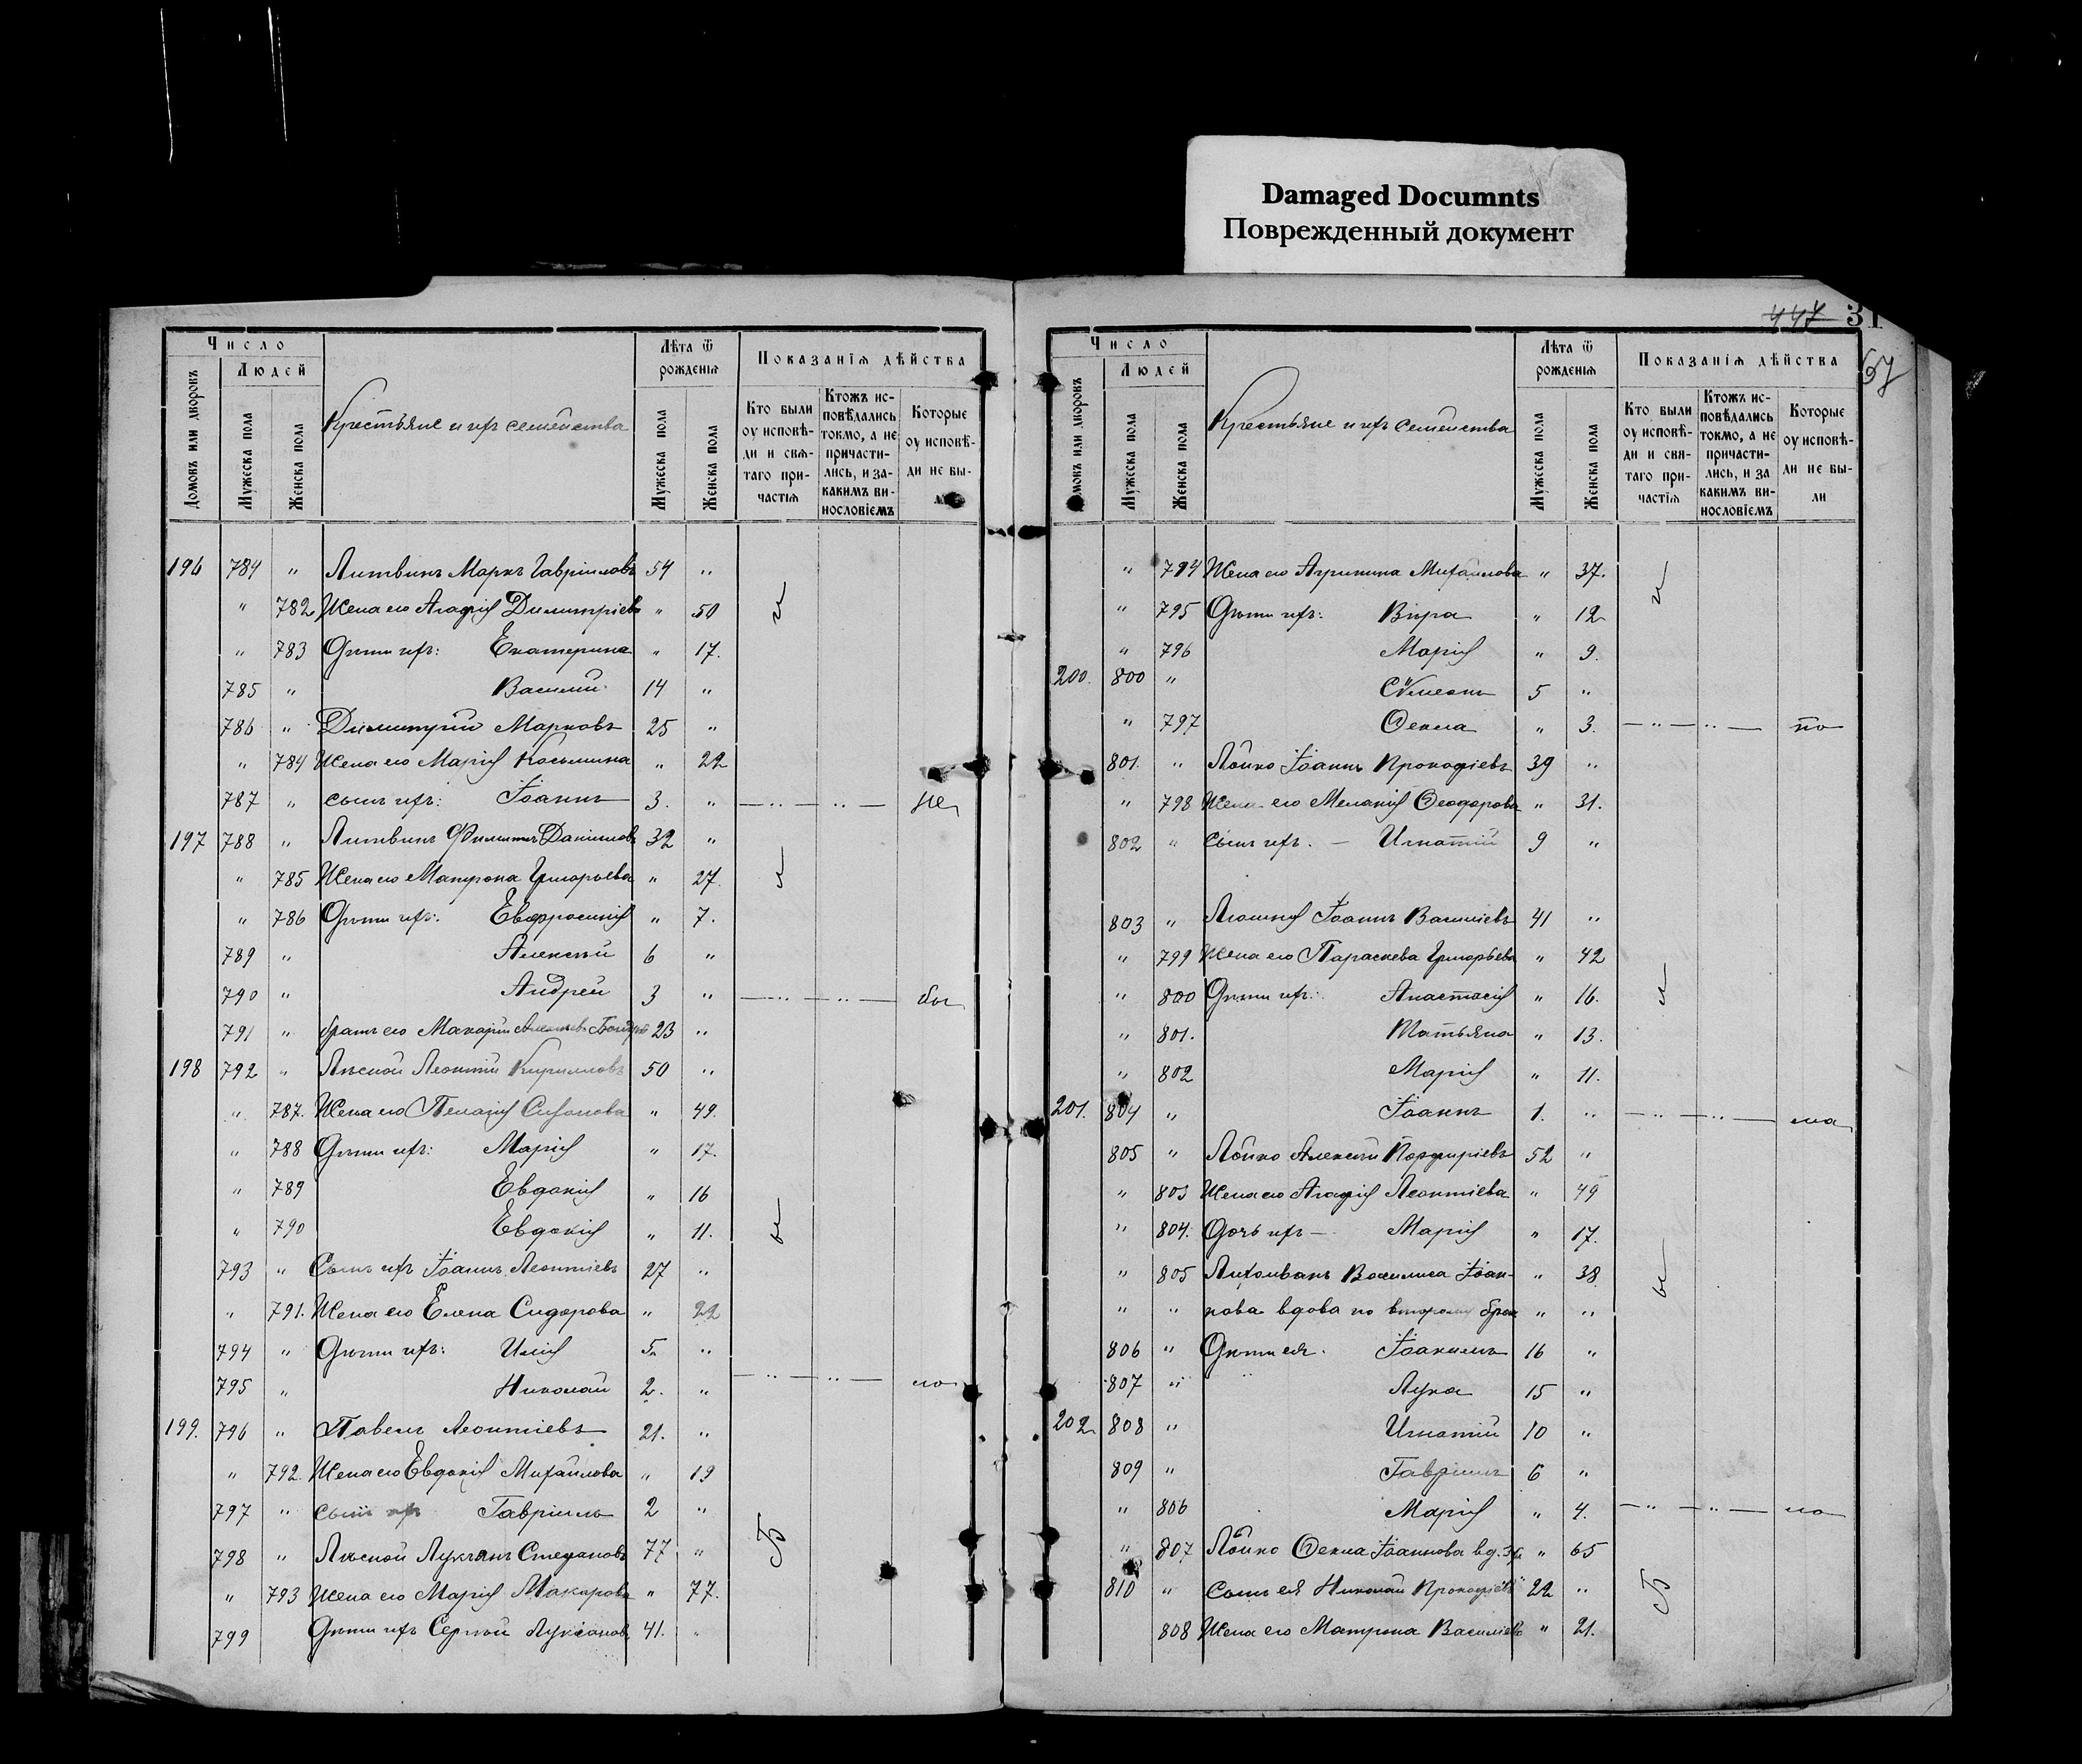 Damaged Documnts
Поврежденный документ
447 31
67
Число
Людей
Домовъ или дворовъ
Мужеска пола
Женска пола
Крестьяне и ихъ семейства
Лѣта ѿ рожденія
Мужеска пола
Женска пола
Показанія дѣйства
Кто были оу исповѣ-
ди и свя-
таго при-
частія
Ктожъ ис-
повѣдались
токмо, а не
причасти-
лись, и за-
какимъ ви-
нословіемъ
Которые
оу исповѣ-
ди не бы-
196 784 " Литвинъ Маркъ Гавріиловъ 54 "
" 782 Жена его Агафія Димитріева " 50
" 783 Дѣти ихъ: Екатерина " 17.
785 " Василій 14 "
786 " Димитрій Марковъ 25 "
" 784 Жена его Марія Косьмина " 22
787 " сынъ ихъ: Іоаннъ 3. " — " — " — не
197 788 " Литвинъ Филиппъ Даніиловъ 32 "
" 785 Жена его Матрона Григорьева " 27.
" 786 Дѣти ихъ: Евфросинія " 7.
789 " Алексѣй 6 "
790 " Андрей 3 " — " — " — бы
791 " братъ его Макарій 23 "
198 792 " Лѣсной Леонтій Кирилловъ 50 "
" 787. Жена его Пелагія " 49.
" 788 Дѣти ихъ: Марія " 17.
" 789 Евдокія " 16
" 790 Евдокія " 11.
793 " Сынъ ихъ Іоаннъ Леонтіевъ 27 "
" 791. Жена его Елена Сидорова " 22
794 " Дѣти ихъ: Илія 5. "
795 " Николай 2. " — " — " — ло
199. 796 " Павелъ Леонтіевъ 21. "
" 792. Жена его Евдокія Михайлова " 19
797 " сынъ ихъ Гавріилъ 2 "
798 " Лѣсной Лукіянъ Стефановъ 77 "
" 793 Жена его Марія Макарова " 77.
799 Дѣти ихъ Сергѣй Лукіановъ 41. "
Число
Людей
домовъ или дворовъ
Мужеска пола
Женска пола
Крестьяне и ихъ семейства
Лѣта ѿ рожденія
Мужеска пола
Женска пола
Показанія дѣйства
Кто были
оу исповѣ-
ди и свя-
таго при-
частія
Ктожъ ис-
повѣдались
токмо, а не
причасти-
лись, и за
какимъ ви-
нословіемъ
Которые
оу исповѣ-
ди не бы-
ли
" 794 Жена его Агрипина Михайлова " 37.
" 795 Дѣти ихъ: Вѣра " 12
" 796 Марія " 9.
200. 800 " Сѵмеонъ 5 "
" 797 Ѳекла " 3. — " — " — по
801. " Лойко Іоаннъ Прокофіевъ 39 "
" 798 Жена его Меланія Ѳеодорова " 31.
802 " Сынъ ихъ. — Игнатій 9 "
803 " Іоаннъ Василіевъ 41 "
" 799 Жена его Параскева Григорьева " 42
" 800 Дѣти ихъ: Анастасія " 16.
" 801. Татьяна " 13.
" 802 Марія " 11.
201. 804 " Іоаннъ 1. " — " — " — ма
805 " Лойко Алексѣй Порфиріевъ 52 "
" 803 Жена его Агафія Леонтіева " 49
" 804. Дочь ихъ — Марія " 17.
" 805 Василиса Іоан- " 38.
" " нова вдова по второму браку " "
806 " Дѣти ея. Іоакимъ 16 "
807 " Лука 15 "
202 808 " Игнатій 10 "
809 " Гавріилъ 6 "
" 806 Марія " 4. — " — " — ло
" 807 Лойко Ѳекла Іоаннова вд. " 65
810 " Сынъ ея Николай Прокофіевъ 22 "
808 Жена его Матрона Василіева " 21.